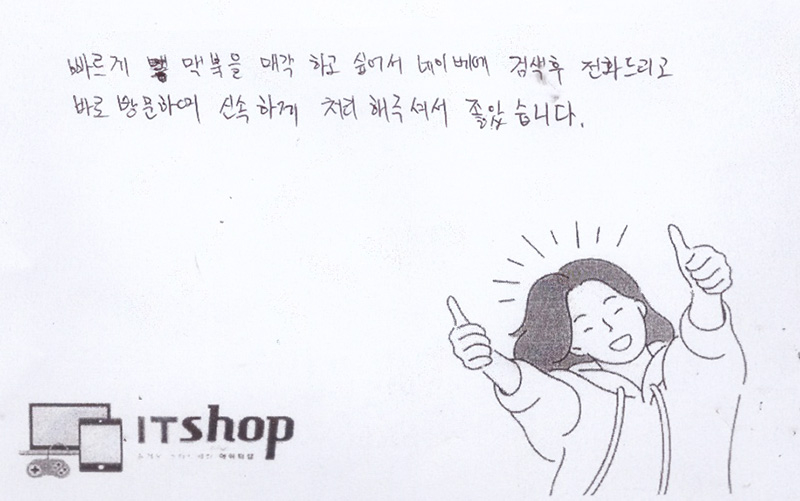 빠르게 맥북을 매각 하고 싶어서 네이버에 검색후 전화드리고
바로 방문하여 신속하게 처리해주셔서 좋았습니다.
ITshop